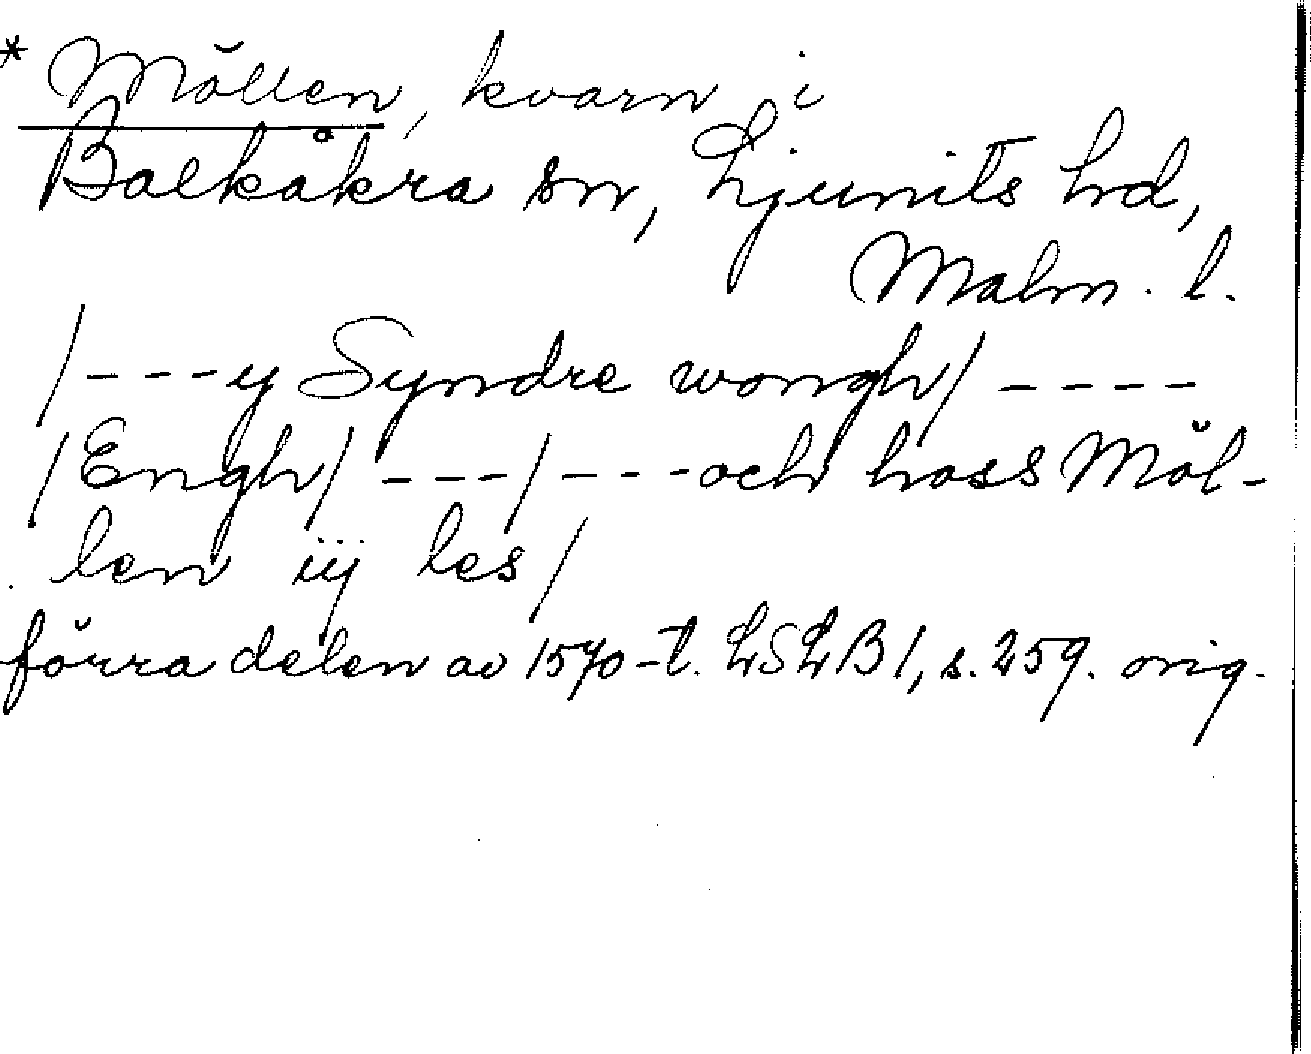 * Möllen, kvarn i
Balkåkra sn, Ljunits hd,
Malm. l.
/---y Syndre wongh/ ----
/Engh/ ---/---och hoss Möl-
len iij les/
förra delen av 1570-t. LSLB 1, s. 259. orig.